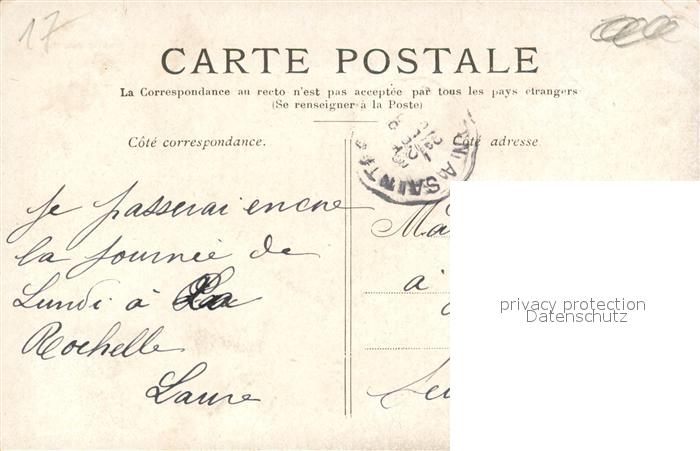 17
CARTE POSTALE
La Correspondance au recto n'est pas acceptée par tous les pays etrangers
(Se renseigner à la Poste)
Côté correspondance.
Côté adresse.
SAINTES
Je passerai encore
la journée de
Lundi à La
Rochelle
Laure
Ma
a
privacy protection
Datenschutz